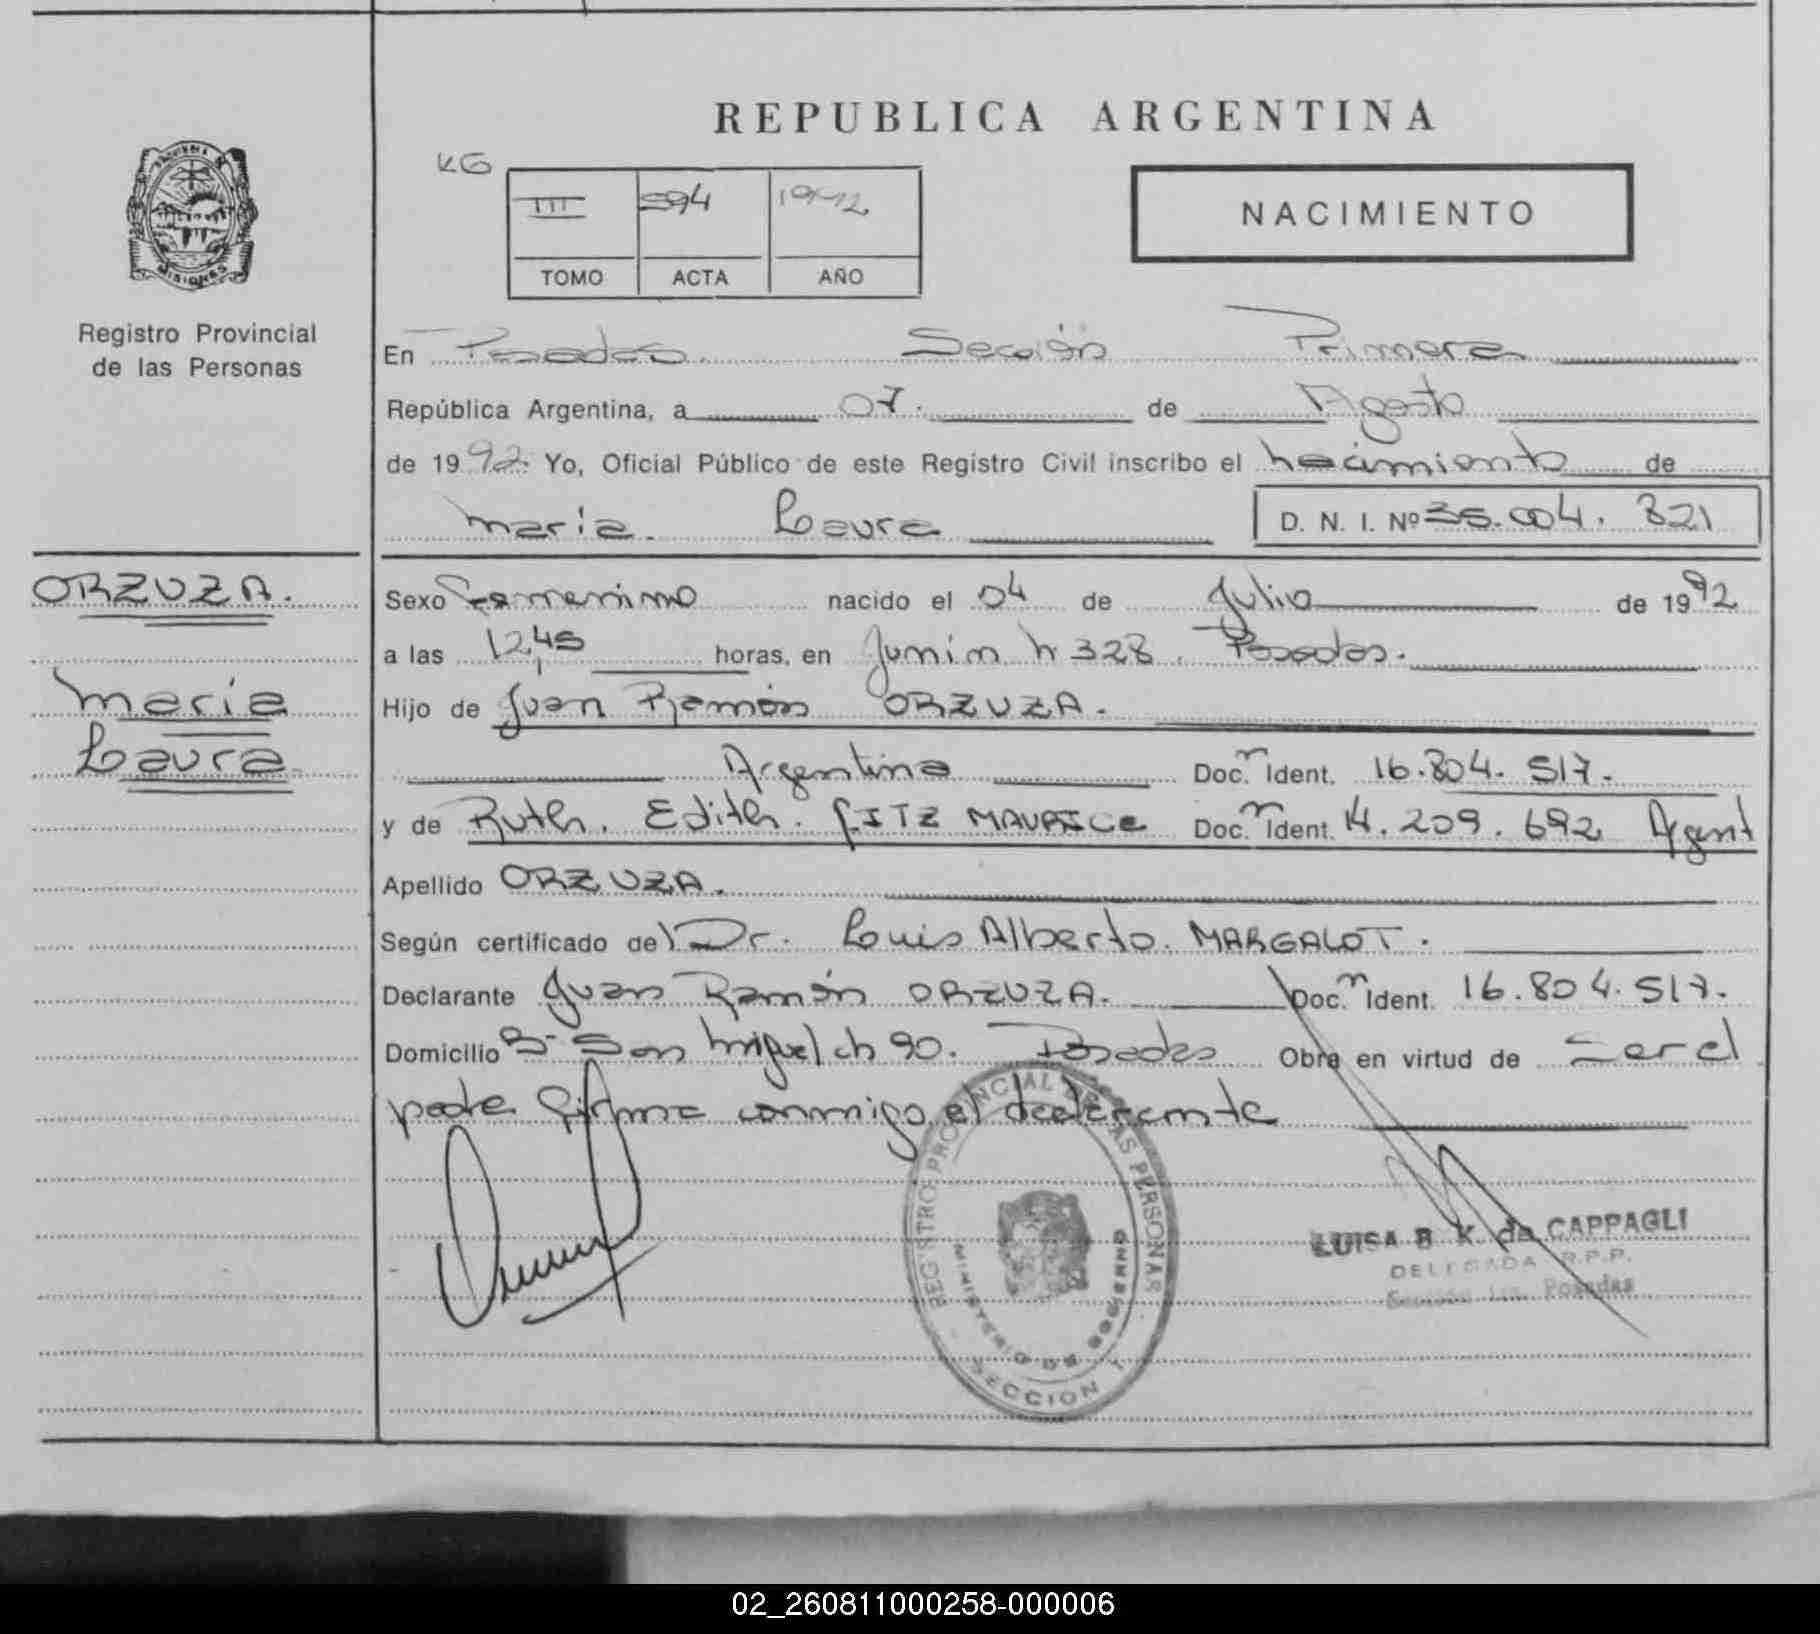 REPUBLICA ARGENTINA
KG
III 594 1992
TOMO ACTA AÑO
NACIMIENTO
MISIONES
Registro Provincial
de las Personas
En Posadas. Sección Primera
República Argentina, a 07. de Agosto
de 1992. Yo, Oficial Público de este Registro Civil inscribo el nacimiento de
maria. Laura
D. N. I. Nº 35.004. 321
ORZUZA.
maria
Laura
Sexo Femenino nacido el 04 de Julio de 1992
a las 12,45 horas, en Junin n 328. Posadas.
Hijo de Juan Ramón ORZUZA.
Argentina Doc. n Ident. 16.804. 517.
y de Ruth. Edith. FITZ MAURICE Doc. n Ident. 14.209.692 Argent
Apellido ORZUZA.
Según certificado del Dr. Luis Alberto. MARGALOT.
Declarante Juan Ramón ORZUZA. Doc. n Ident. 16.804.517.
Domicilio B- San Miguel ch 90. Posadas Obra en virtud de ser el
padre firma conmigo el declarante
REGISTRO PROVINCIAL DE LAS PERSONAS
MINISTERIO DE GOBIERNO
SECCION 1
LUISA B K de CAPPAGLI
DELEGADA R.P.P.
Sección 1ra. Posadas
02_260811000258-000006